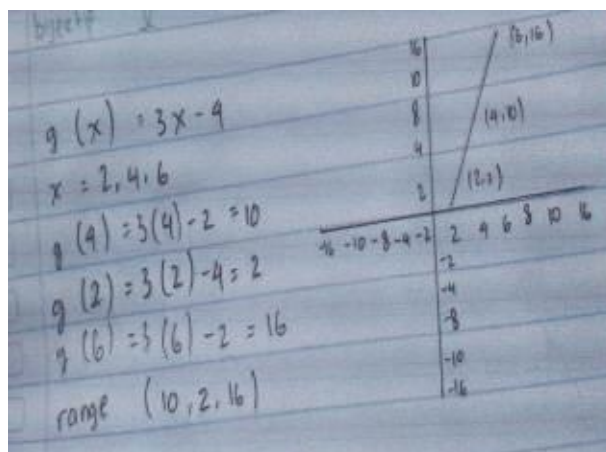 g(x) = 3x - 4
x = 2, 4, 6
g(4) = 3(4) - 2 = 10
g(2) = 3(2) - 4 = 2
g(6) = 3(6) - 2 = 16
range (10, 2, 16)
16
10
8
4
2
(6,16)
(4,10)
(2,2)
-16 -10 -8 -4 -2 2 4 6 8 10 16
-2
-4
-8
-10
-16